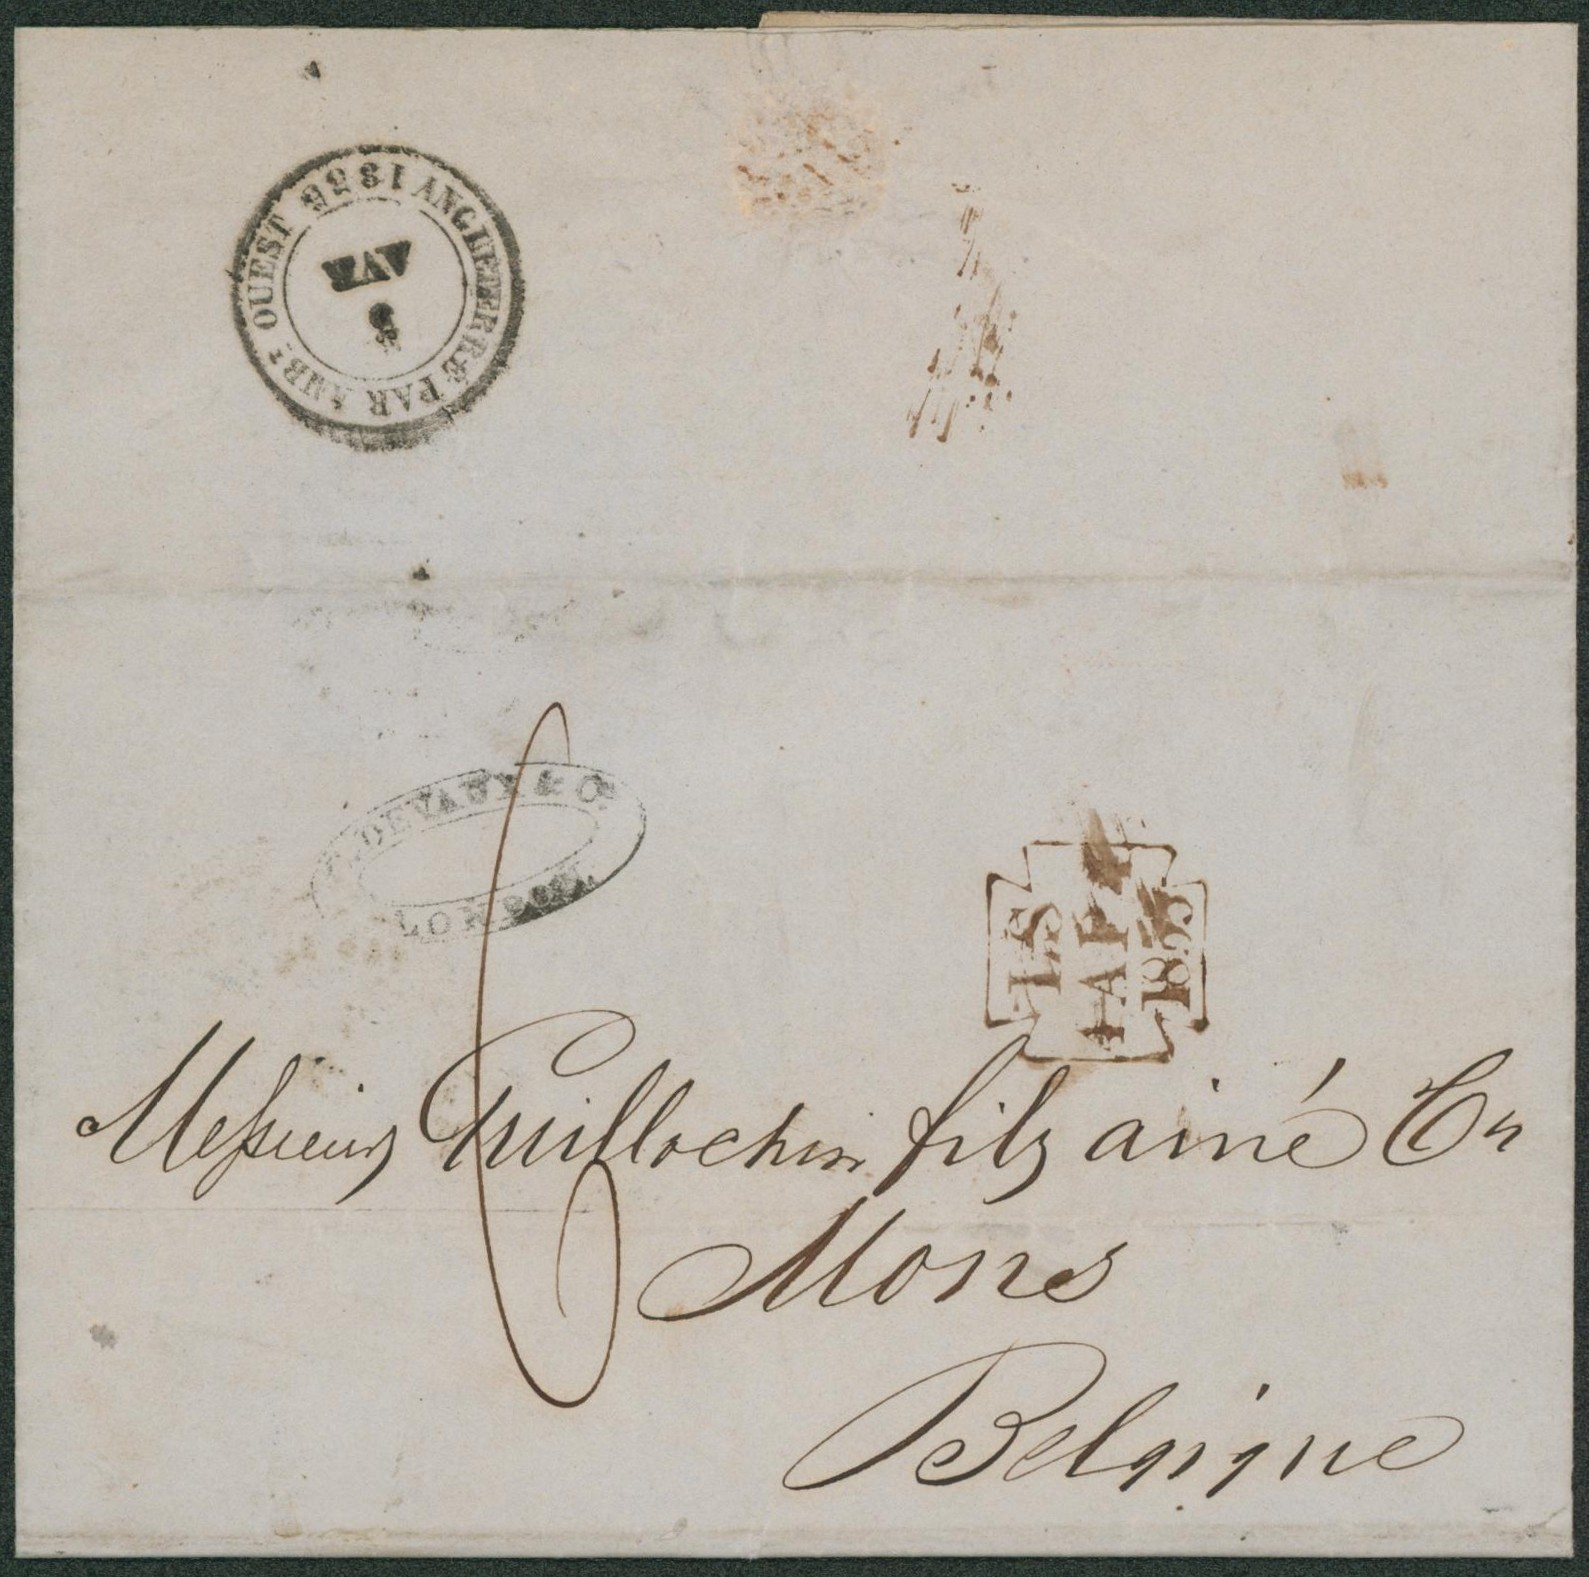 ANGLETERRE PAR AMB: OUEST 1855
AVR
DEVAUX & Co
LONDON
LS
1 AP
1855
6
Messieurs Guillochin fils ainé Cie
Mons
Belgique